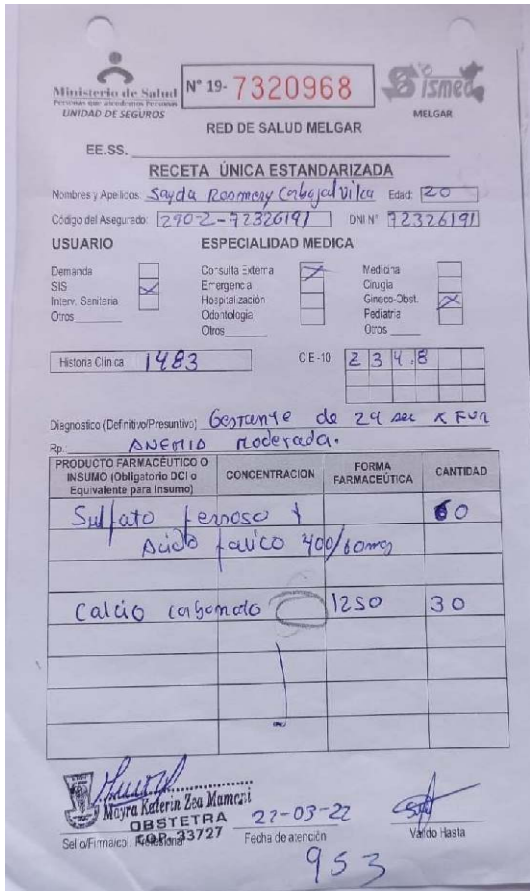 Ministerio de Salud
Personas que atendemos Personas
UNIDAD DE SEGUROS
N° 19- 7320968
Sismed
MELGAR
RED DE SALUD MELGAR
EE.SS.
RECETA ÚNICA ESTANDARIZADA
Nombres y Apellidos: Sayda Rosmery Carbajal Vilca Edad: 20
Código del Asegurado: 290-2-72326191 DNI N° 72326191
USUARIO ESPECIALIDAD MEDICA
Demanda Consulta Externa Medicina
SIS Emergencia Cirugia
Interv. Sanitaria Hospitalización Gineco-Obst.
Otros Odontología Pediatria
Otros Otros
Historia Clinica 1483 CE-10 Z34.8
Diagnostico (Definitivo/Presuntivo) Gestante de 24 sem x FUR
Rp.: ANEMIA moderada.
PRODUCTO FARMACÉUTICO O INSUMO (Obligatorio DCI o Equivalente para Insumo) CONCENTRACION FORMA FARMACEÚTICA CANTIDAD
Sulfato ferroso + 60
Acido folico 400/60mg
Calcio carbonato 1250 30
Mayra Katerin Zea Mamani
OBSTETRA
COP. 33727
Sello/Firma/col. Profesional
22-03-22
Fecha de atención
Valido Hasta
953